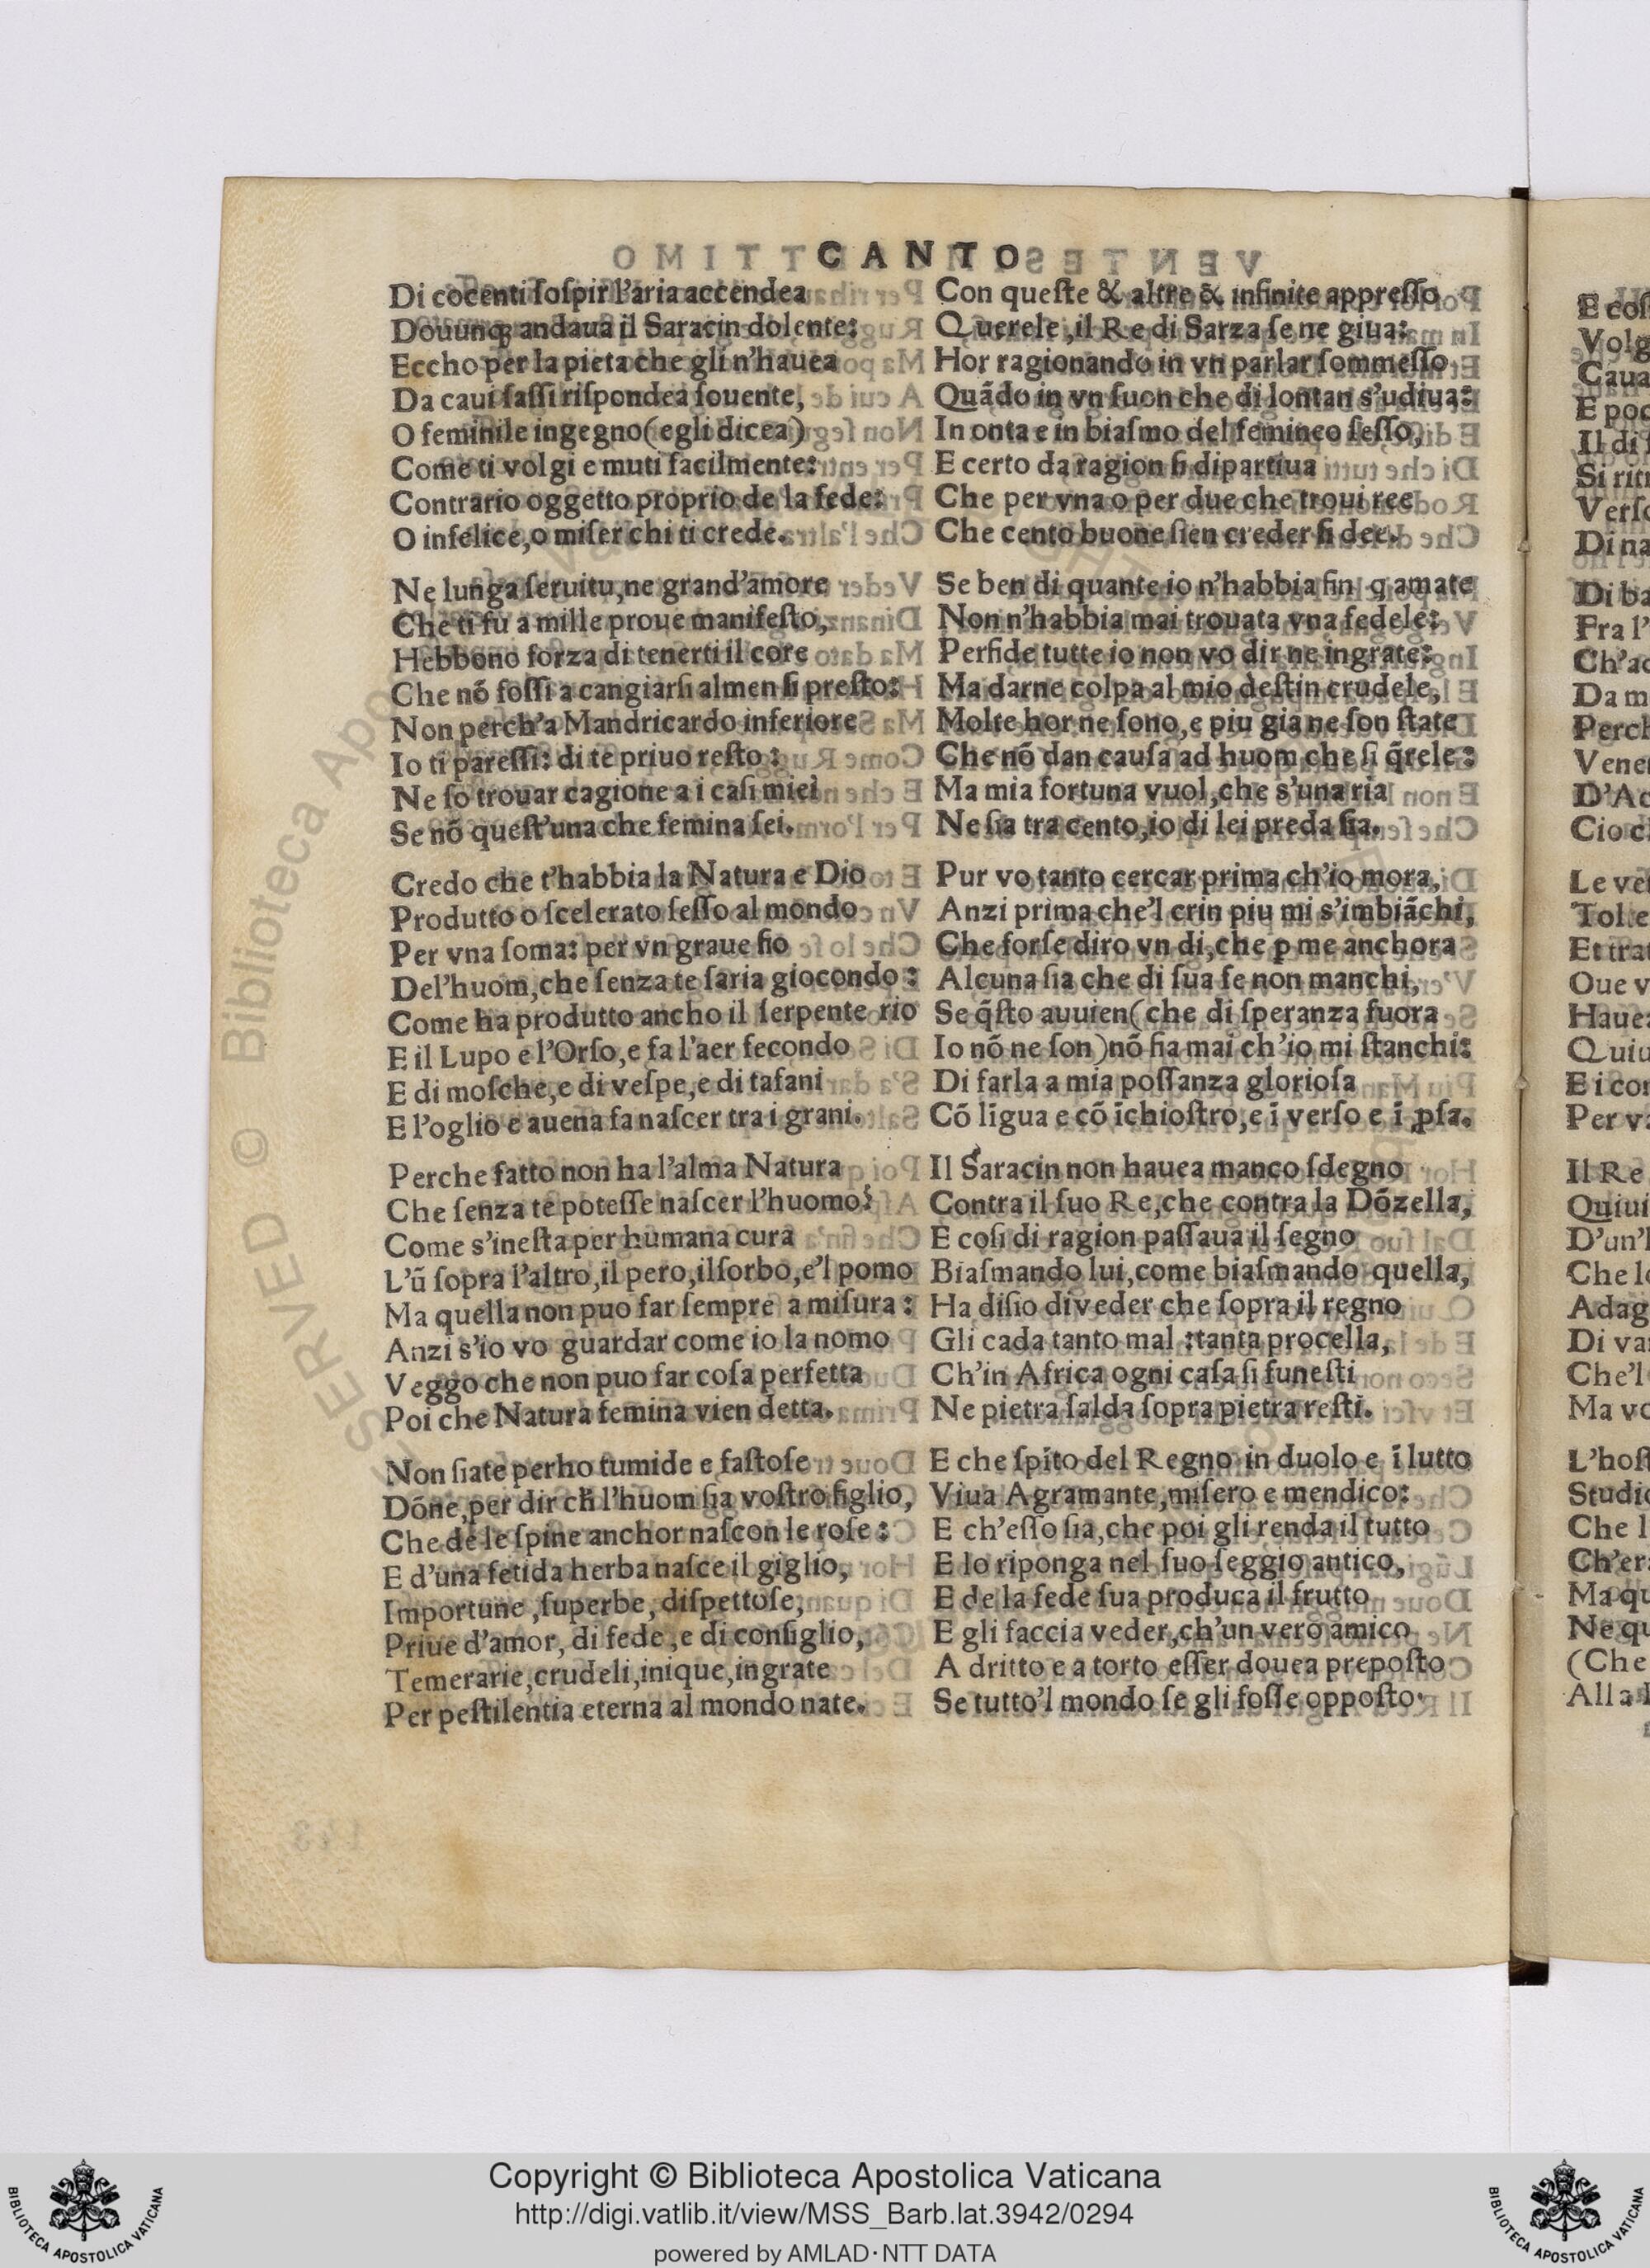 CANTO
Di cocenti ſoſpir l'aria accendea
Douunqꝫ andaua il Saracin dolente:
Eccho per la pieta che gli n'hauea
Da caui ſaſſi riſpondea ſouente,
O feminile ingegno (egli dicea)
Come ti volgi e muti facilmente:
Contrario oggetto proprio de la fede:
O infelice, o miſer chi ti crede.
Ne lunga ſeruitu, ne grand'amore
Che ti fu a mille proue manifeſto,
Hebbono forza di tenerti il core
Che nõ foſſi a cangiarſi almen ſi preſto:
Non perch'a Mandricardo inferiore
Io ti pareſſi: di te priuo reſto:
Ne ſo trouar cagione a i caſi miei
Se nõ queſt'una che femina ſei.
Credo che t'habbia la Natura e Dio
Produtto o ſcelerato ſeſſo al mondo
Per vna ſoma: per vn graue fio
Del'huom, che ſenza te ſaria giocondo:
Come ha produtto ancho il ſerpente rio
E il Lupo e l'Orſo, e fa l'aer fecondo
E di moſche, e di veſpe, e di tafani
E l'oglio e auena fa naſcer tra i grani.
Perche fatto non ha l'alma Natura
Che ſenza te poteſſe naſcer l'huomo?
Come s'ineſta per humana cura
L'ũ ſopra l'altro, il pero, il ſorbo, e'l pomo
Ma quella non puo far ſempre a miſura:
Anzi s'io vo guardar come io la nomo
Veggo che non puo far coſa perfetta
Poi che Natura femina vien detta.
Non ſiate perho tumide e faſtoſe
Dõne, per dir ch̃ l'huom ſia voſtro figlio,
Che de le ſpine anchor naſcon le roſe:
E d'una fetida herba naſce il giglio,
Importune, ſuperbe, diſpettoſe,
Priue d'amor, di fede, e di conſiglio,
Temerarie, crudeli, inique, ingrate
Per peſtilentia eterna al mondo nate.
Con queſte & altre & infinite appreſſo
Querele, il Re di Sarza ſe ne giua:
Hor ragionando in vn parlar ſommeſſo
Quãdo in vn ſuon che di lontan s'udiua:
In onta e in biaſmo del femineo ſeſſo,
E certo da ragion ſi dipartiua
Che per vna o per due che troui ree
Che cento buone ſien creder ſi dee.
Se ben di quante io n'habbia fin q amate
Non n'habbia mai trouata vna fedele:
Perfide tutte io non vo dir ne ingrate:
Ma darne colpa al mio deſtin crudele,
Molte hor ne ſono, e piu gia ne ſon ſtate
Che nõ dan cauſa ad huom che ſi q̃rele:
Ma mia fortuna vuol, che s'una ria
Ne ſia tra cento, io di lei preda ſia.
Pur vo tanto cercar prima ch'io mora,
Anzi prima che'l crin piu mi s'imbiãchi,
Che forſe diro vn di, che ꝑ me anchora
Alcuna ſia che di ſua fe non manchi,
Se q̃ſto auuien (che di ſperanza fuora
Io nõ ne ſon) nõ fia mai ch'io mi ſtanchi:
Di farla a mia poſſanza glorioſa
Cõ lĩgua e cõ ĩchioſtro, e ĩ verſo e ĩ ꝓſa.
Il Saracin non hauea manco ſdegno
Contra il ſuo Re, che contra la Dõzella,
E coſi di ragion paſſaua il ſegno
Biaſmando lui, come biaſmando quella,
Ha diſio di veder che ſopra il regno
Gli cada tanto mal: tanta procella,
Ch'in Africa ogni caſa ſi funeſti
Ne pietra ſalda ſopra pietra reſti.
E che ſpito del Regno in duolo e ĩ lutto
Viua Agramante, miſero e mendico:
E ch'eſſo ſia, che poi gli renda il tutto
E lo riponga nel ſuo ſeggio antico,
E de la fede ſua produca il frutto
E gli faccia veder, ch'un vero amico
A dritto e a torto eſſer douea prepoſto
Se tutto'l mondo ſe gli foſſe oppoſto.
E coſ
Volg
Caua
E poc
Il di
Si riti
Verſo
Di na
Di ba
Fra l'
Ch'ac
Da m
Perch
Vene
D'Ac
Cio c
Le ve
Tol e
Et tra
Oue v
Haue
Quiu
E i co
Per v
Il Re
Quiui
D'un'
Che l
Adag
Di va
Che'l
Ma vo
L'hoſ
Studio
Che l
Ch'er
Ma qu
Ne qu
(Che
Alla
SERVED © Biblioteca Apo
Copyright © Biblioteca Apostolica Vaticana
http://digi.vatlib.it/view/MSS_Barb.lat.3942/0294
powered by AMLAD·NTT DATA
BIBLIOTECA APOSTOLICA VATICANA
BIBLIOTECA APOSTOLICA VATICANA